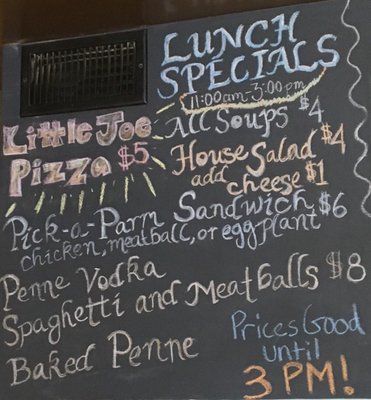 LUNCH
SPECIALS
11:00am-3:00pm
Little Joe
Pizza $5
All Soups $4
House Salad $4
add cheese $1
Pick-a-Parm Sandwich $6
chicken, meatball, or eggplant
Penne Vodka
Spaghetti and Meatballs $8
Baked Penne
Prices Good
until
3 PM!